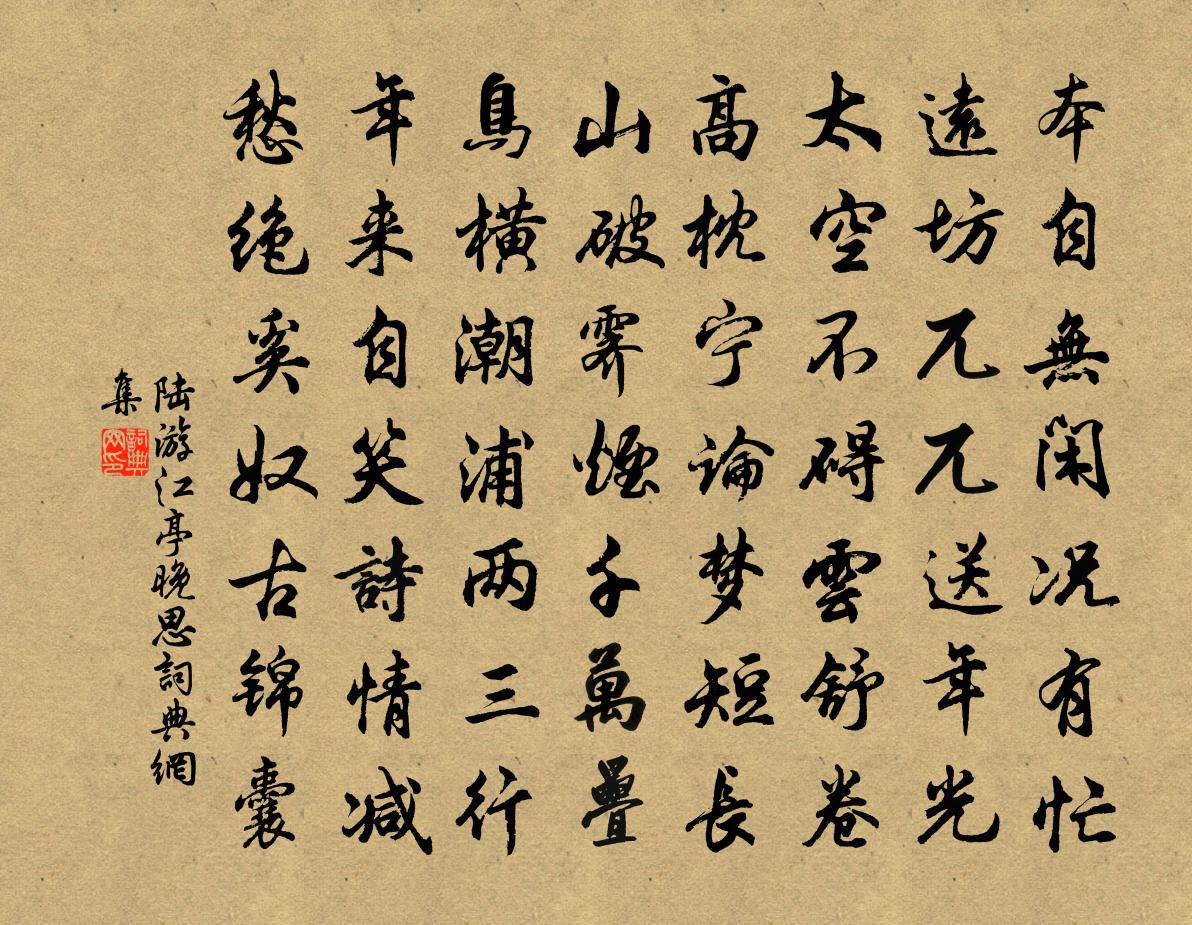 本自無閑況有忙
遠坊兀兀送年光
太空不碍雲舒卷
高枕宁論梦短長
山破霁煙千萬疊
鳥橫潮浦两三行
年来自笑詩情减
愁绝奚奴古锦囊
陆游江亭晚思詞典網
集
詞典
网印